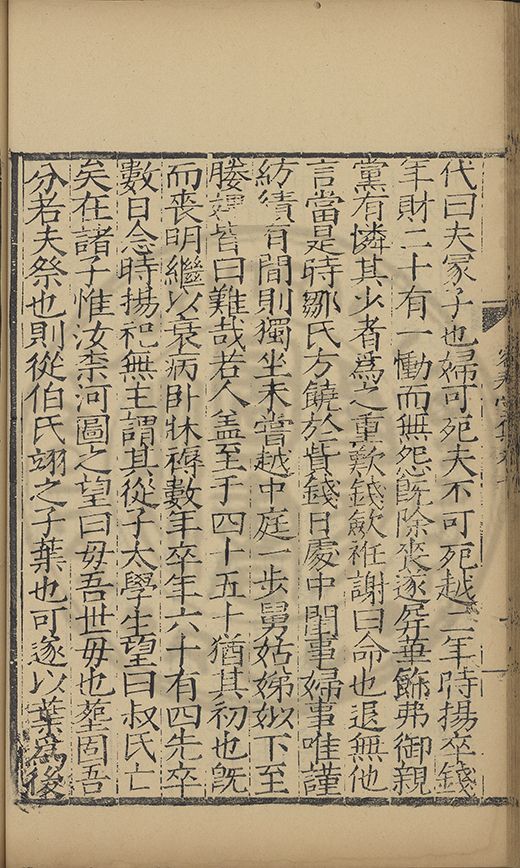 代曰夫冢子也婦可死夫不可死越二年時揚卒錢
年財二十有一慟而無怨旣除喪遂屏華餙弗御親
黨有憐其少者爲之重歎錢歛袵謝曰命也退無他
言當是時鄒氏方饒於貲錢日處中閨事婦事唯謹
紡績有間則獨坐未嘗越中庭一步舅姑娣姒下至
媵𡝭皆曰難哉若人盖至于四十五十猶其初也旣
而喪明繼以衰病卧牀褥數年卒年六十有四先卒
數日念時揚祀無主謂其從子太學生望曰叔氏亡
矣在諸子惟汝柰何圖之望曰毋吾世毋也塟固吾
分若夫祭也則從伯氏翊之子葉也可遂以葉爲後